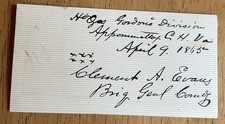 Hd Qrs Gordon's Division
Appomattox C. H. Va
April 9 1865
Clement A. Evans
Brig Genl Comdg